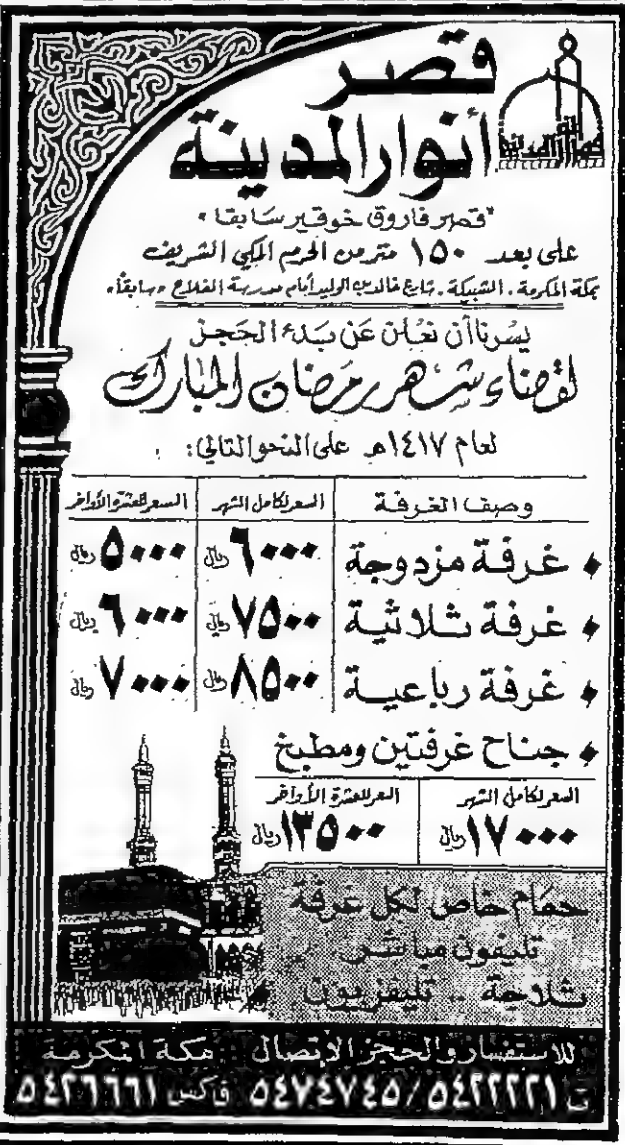 قصر
أنوار المدينة
"قصر فاروق خوقير سابقا"
على بعد ١٥٠ متر من الحرم المكي الشريف
بمكة المكرمة . الشبيكة . شارع خالد بن الوليد أمام مدرسة الفلاح «سابقاً»
يسرنا أن نعلن عن بدء الحجز
لقضاء شهر رمضان المبارك
لعام ١٤١٧هـ على النحو التالي:
وصف الغرفة السعر لكامل الشهر السعر للعشرة الأواخر
غرفة مزدوجة ٦٠٠٠ ريال ٥٠٠٠ ريال
غرفة ثلاثية ٧٥٠٠ ريال ٦٠٠٠ ريال
غرفة رباعية ٨٥٠٠ ريال ٧٠٠٠ ريال
جناح غرفتين ومطبخ
السعر لكامل الشهر السعر للعشرة الأواخر
١٧٠٠٠ ريال ١٣٥٠٠ ريال
حمام خاص لكل غرفة
تليفون مباشر
ثلاجة .. تليفزيون
للاستفسار والحجز الاتصال : مكة المكرمة
ت ٥٤٢٢٢٢١ / ٥٤٧٤٧٤٥ فاكس ٥٤٢٦٦٦١